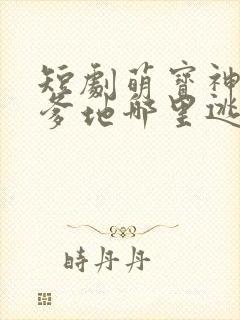 短劇萌寶神
爹地哪里逃
時丹丹